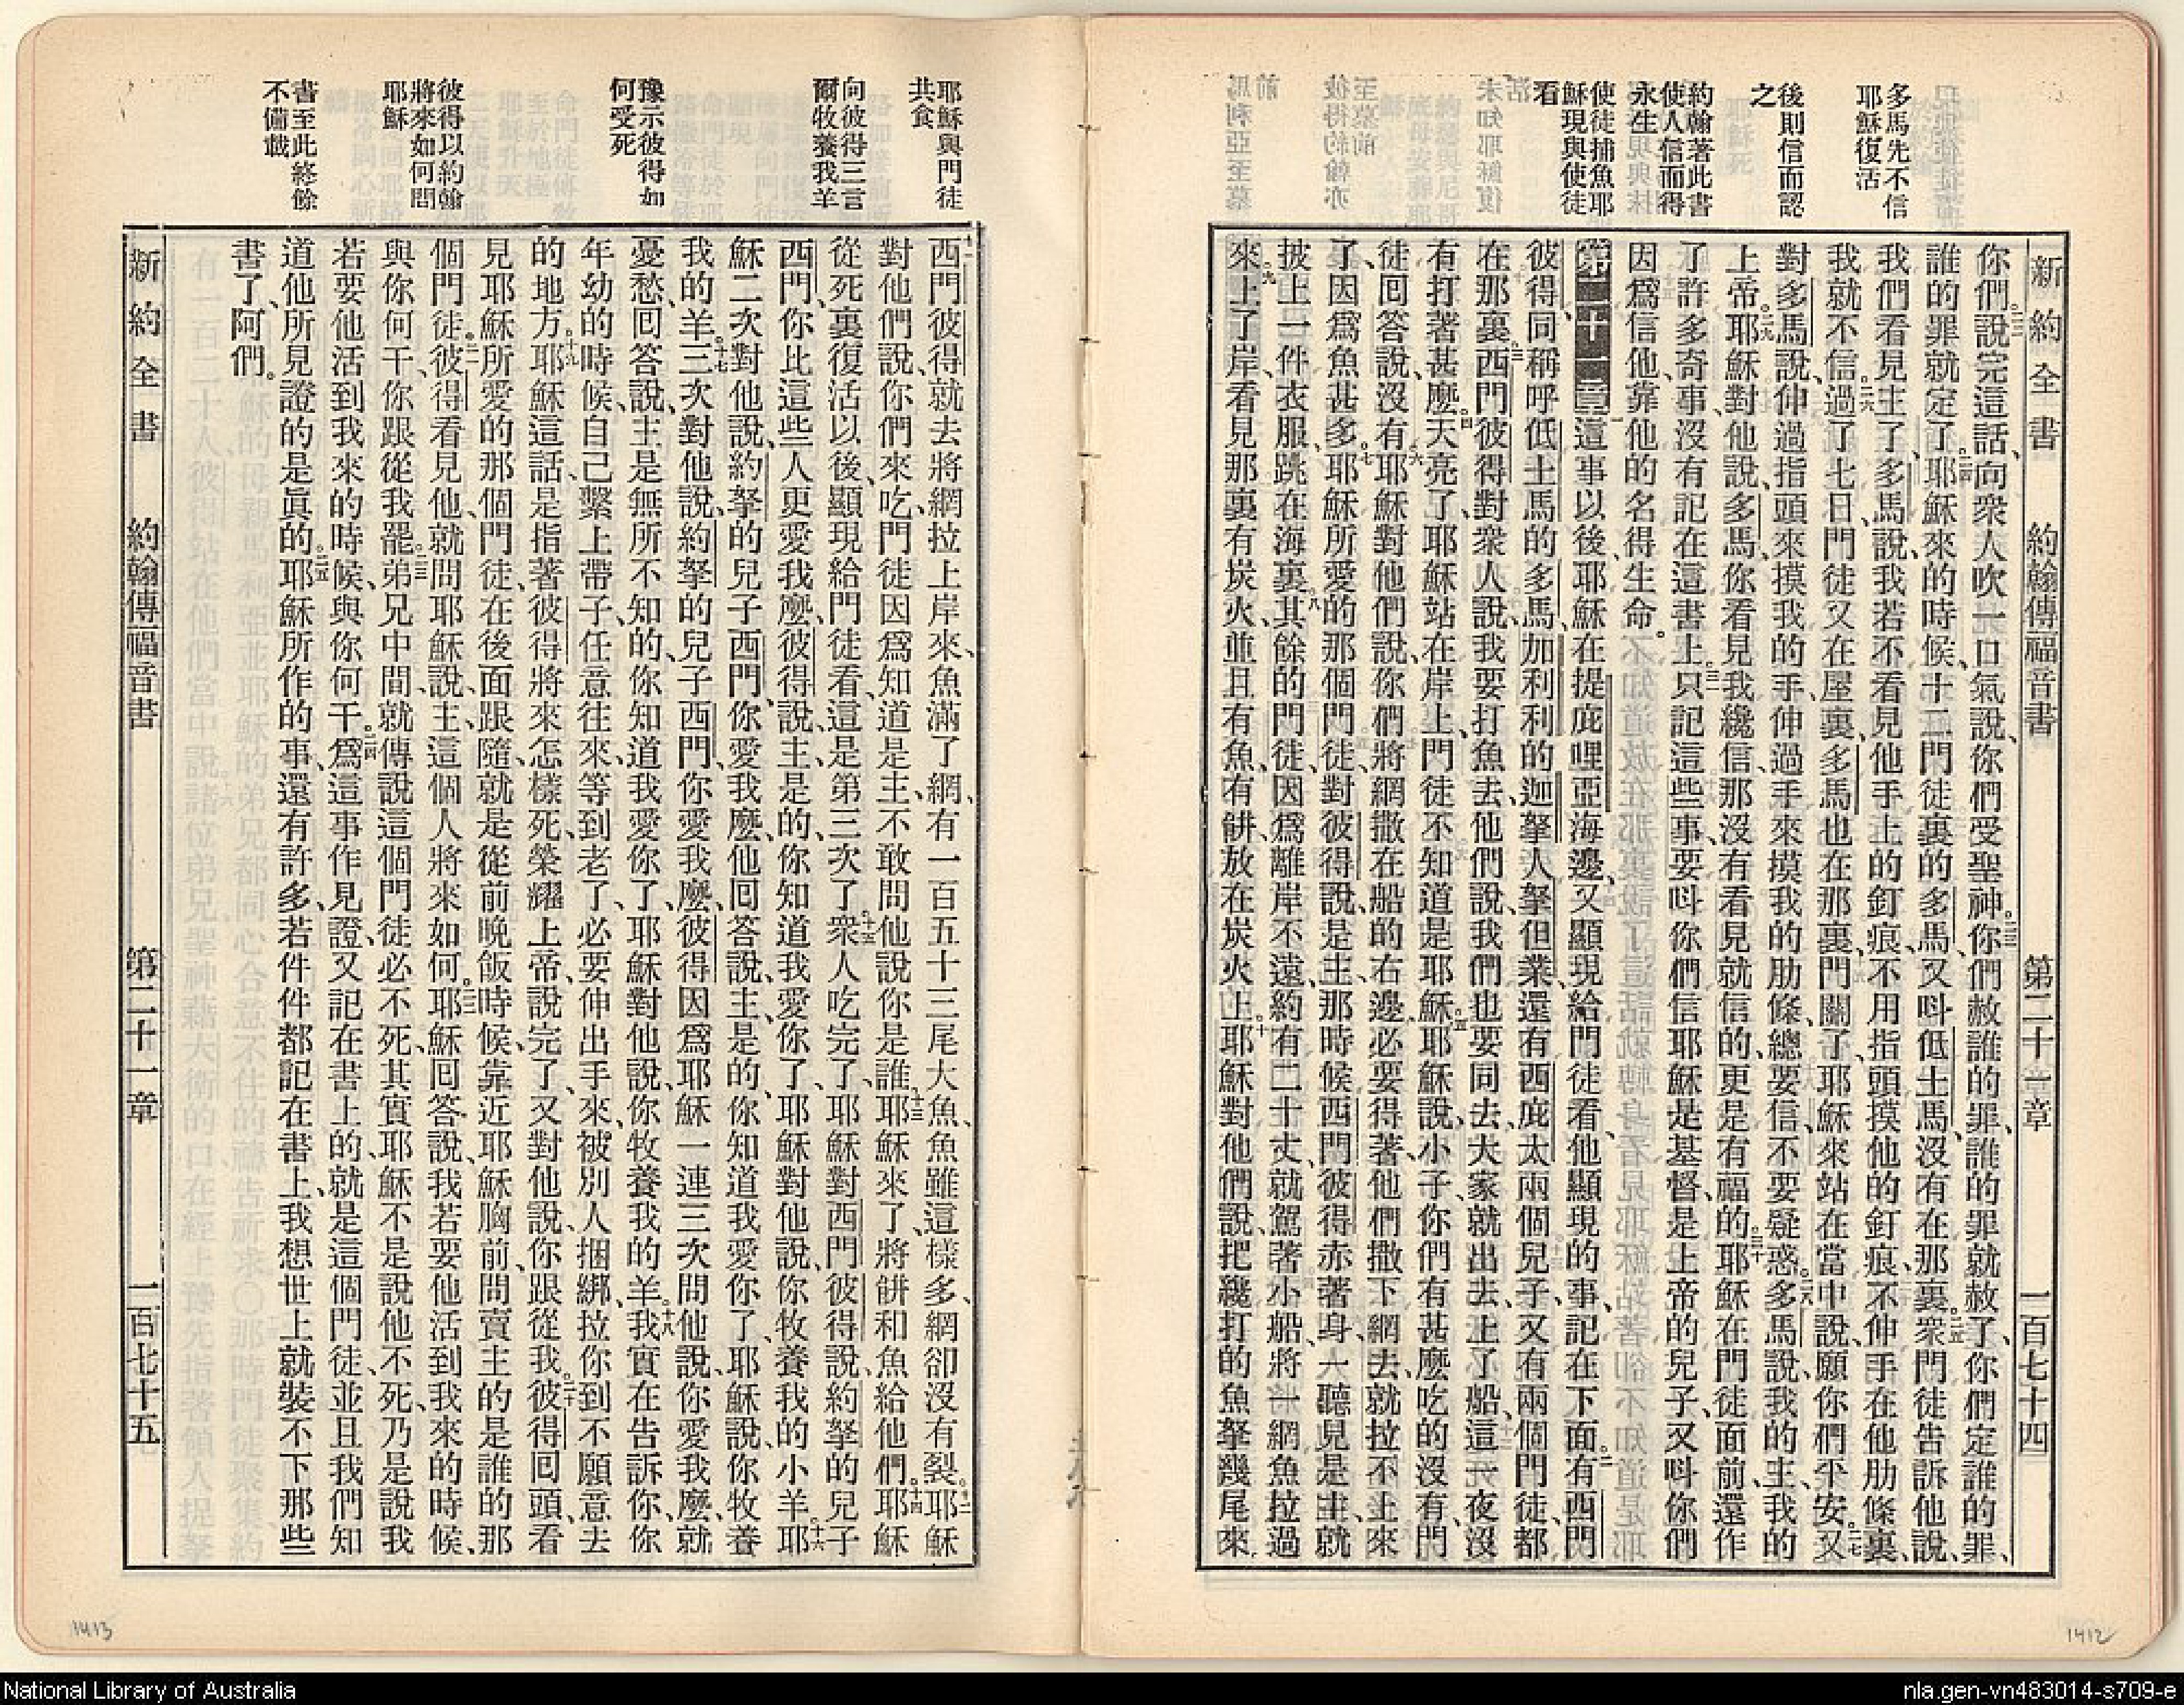 多馬先不信
耶穌復活
後則信而認
之
約翰著此書
使人信而得
永生
使徒捕魚耶
穌現與使徒
看
新約全書 約翰傳福音書 第二十一章 一百七十四
你們。二二說完這話、向衆人吹一口氣說、你們受聖神。二三你們赦誰的罪、誰的罪就赦了、你們定誰的罪、
誰的罪就定了。二四耶穌來的時候、十二門徒裏的多馬、又呌低土馬、沒有在那裏。二五衆門徒告訴他說、
我們看見主了、多馬說、我若不看見他手上的釘痕、不用指頭摸他的釘痕、不伸手在他肋條裏、
我就不信。二六過了七日、門徒又在屋裏、多馬也在那裏、門關了、耶穌來站在當中說、願你們平安。二七又
對多馬說、伸過指頭來摸我的手、伸過手來摸我的肋條、總要信、不要疑惑。二八多馬說、我的主、我的
上帝。二九耶穌對他說、多馬、你看見我纔信、那沒有看見就信的、更是有福的。三十耶穌在門徒面前、還作
了許多奇事、沒有記在這書上。三一只記這些事、要呌你們信耶穌是基督、是上帝的兒子、又呌你們
因爲信他、靠他的名得生命。
第二十一章 一這事以後、耶穌在提庇哩亞海邊、又顯現給門徒看、他顯現的事、記在下面。二有西門
彼得、同稱呼低土馬的多馬、加利利的迦拏人拏但業、還有西庇太兩個兒子、又有兩個門徒、都
在那裏。三西門彼得對衆人說、我要打魚去、他們說、我們也要同去、大家就出去、上了船、這一夜沒
有打著甚麽。四天亮了、耶穌站在岸上、門徒不知道是耶穌。五耶穌說、小子、你們有甚麽吃的沒有、門
徒回答說、沒有。六耶穌對他們說、你們將網撒在船的右邊、必要得著、他們撒下網去、就拉不上來
了、因爲魚甚多。七耶穌所愛的那個門徒、對彼得說、是主、那時候西門彼得赤著身、一聽見是主、就
披上一件衣服、跳在海裏。八其餘的門徒、因爲離岸不遠、約有二十丈、就駕著小船、將一網魚拉過
來。九上了岸、看見那裏有炭火、並且有魚、有餠、放在炭火上。十耶穌對他們說、把纔打的魚拏幾尾來。
耶穌與門徒
共食
向彼得三言
爾牧養我羊
豫示彼得如
何受死
彼得以約翰
將來如何問
耶穌
書至此終餘
不備載
十一西門彼得就去、將網拉上岸來、魚滿了網、有一百五十三尾大魚、魚雖這樣多、網卻沒有裂。十二耶穌
對他們說、你們來吃、門徒因爲知道是主、不敢問他說、你是誰。十三耶穌來了、將餠和魚給他們。十四耶穌
從死裏復活以後、顯現給門徒看、這是第三次了。十五衆人吃完了、耶穌對西門彼得說、約拏的兒子
西門、你比這些人更愛我麽、彼得說、主是的、你知道我愛你了、耶穌對他說、你牧養我的小羊。十六耶
穌二次對他說、約拏的兒子西門、你愛我麽、他回答說、主是的、你知道我愛你了、耶穌說、你牧養
我的羊。十七三次對他說、約拏的兒子西門、你愛我麽、彼得因爲耶穌一連三次問他說、你愛我麽、就
憂愁、回答說、主是無所不知的、你知道我愛你了、耶穌對他說、你牧養我的羊。十八我實在告訴你、你
年幼的時候、自己繫上帶子、任意往來、等到老了、必要伸出手來、被別人捆綁、拉你到不願意去
的地方。十九耶穌這話、是指著彼得將來怎樣死、榮耀上帝、說完了、又對他說、你跟從我。二十彼得回頭、看
見耶穌所愛的那個門徒、在後面跟隨、就是從前晚飯時候、靠近耶穌胸前、問賣主的是誰的那
個門徒。二一彼得看見他、就問耶穌說、主、這個人將來如何。二二耶穌回答說、我若要他活到我來的時候、
與你何干、你跟從我罷。二三弟兄中間、就傳說這個門徒必不死、其實耶穌不是說他不死、乃是說我
若要他活到我來的時候、與你何干。二四爲這事作見證、又記在書上的、就是這個門徒、並且我們知
道他所見證的是眞的。二五耶穌所作的事、還有許多、若件件都記在書上、我想世上就裝不下那些
書了、阿們。
新約全書 約翰傳福音書 第二十一章 一百七十五
1413
1412
National Library of Australia
nla.gen-vn483014-s709-e